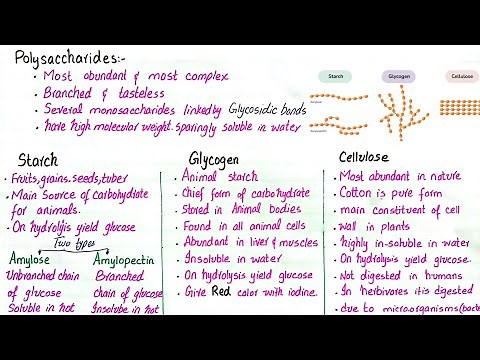 Polysaccharides:-
• Most abundant & most complex
• Branched & tasteless
• Several monosaccharides linked by Glycosidic bonds
• have high molecular weight. sparingly soluble in water
Starch
Glycogen
Cellulose
Starch
• Fruits, grains, seeds, tuber
• Main Source of carbohydrate
for animals.
• On hydrolyis yield glucose
Two types
Amylose
Unbranched chain
of glucose
Soluble in hot
Amylopectin
Branched
chain of glucose
Insolube in hot
Glycogen
• Animal starch
• Chief form of carbohydrate
• Stored in Animal bodies
• Found in all animal cells
• Abundant in liver & muscles
• Insoluble in water
• On hydrolysis yield glucose
• Give Red color with iodine.
Cellulose
• Most abundant in nature
• Cotton is pure form
• main constituent of cell
• wall in plants
• highly in-soluble in water
• On hydrolysis yield glucose.
• Not digested in humans
• In herbivores it is digested
• due to microorganisms(bact